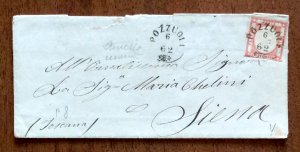 POZZUOLI
6
62
POZZUOLI
6
62
All'Ornatissima Signora
La Sig.ra Maria Chelini
Siena
(Toscana)